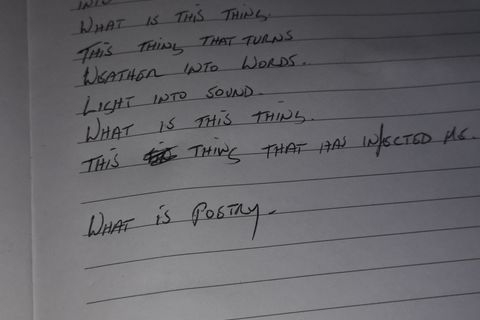 INTO
WHAT IS THIS THING.
THIS THING THAT TURNS
WEATHER INTO WORDS.
LIGHT INTO SOUND.
WHAT IS THIS THING.
THIS THING THAT HAS INFECTED ME.
WHAT IS POETRY.